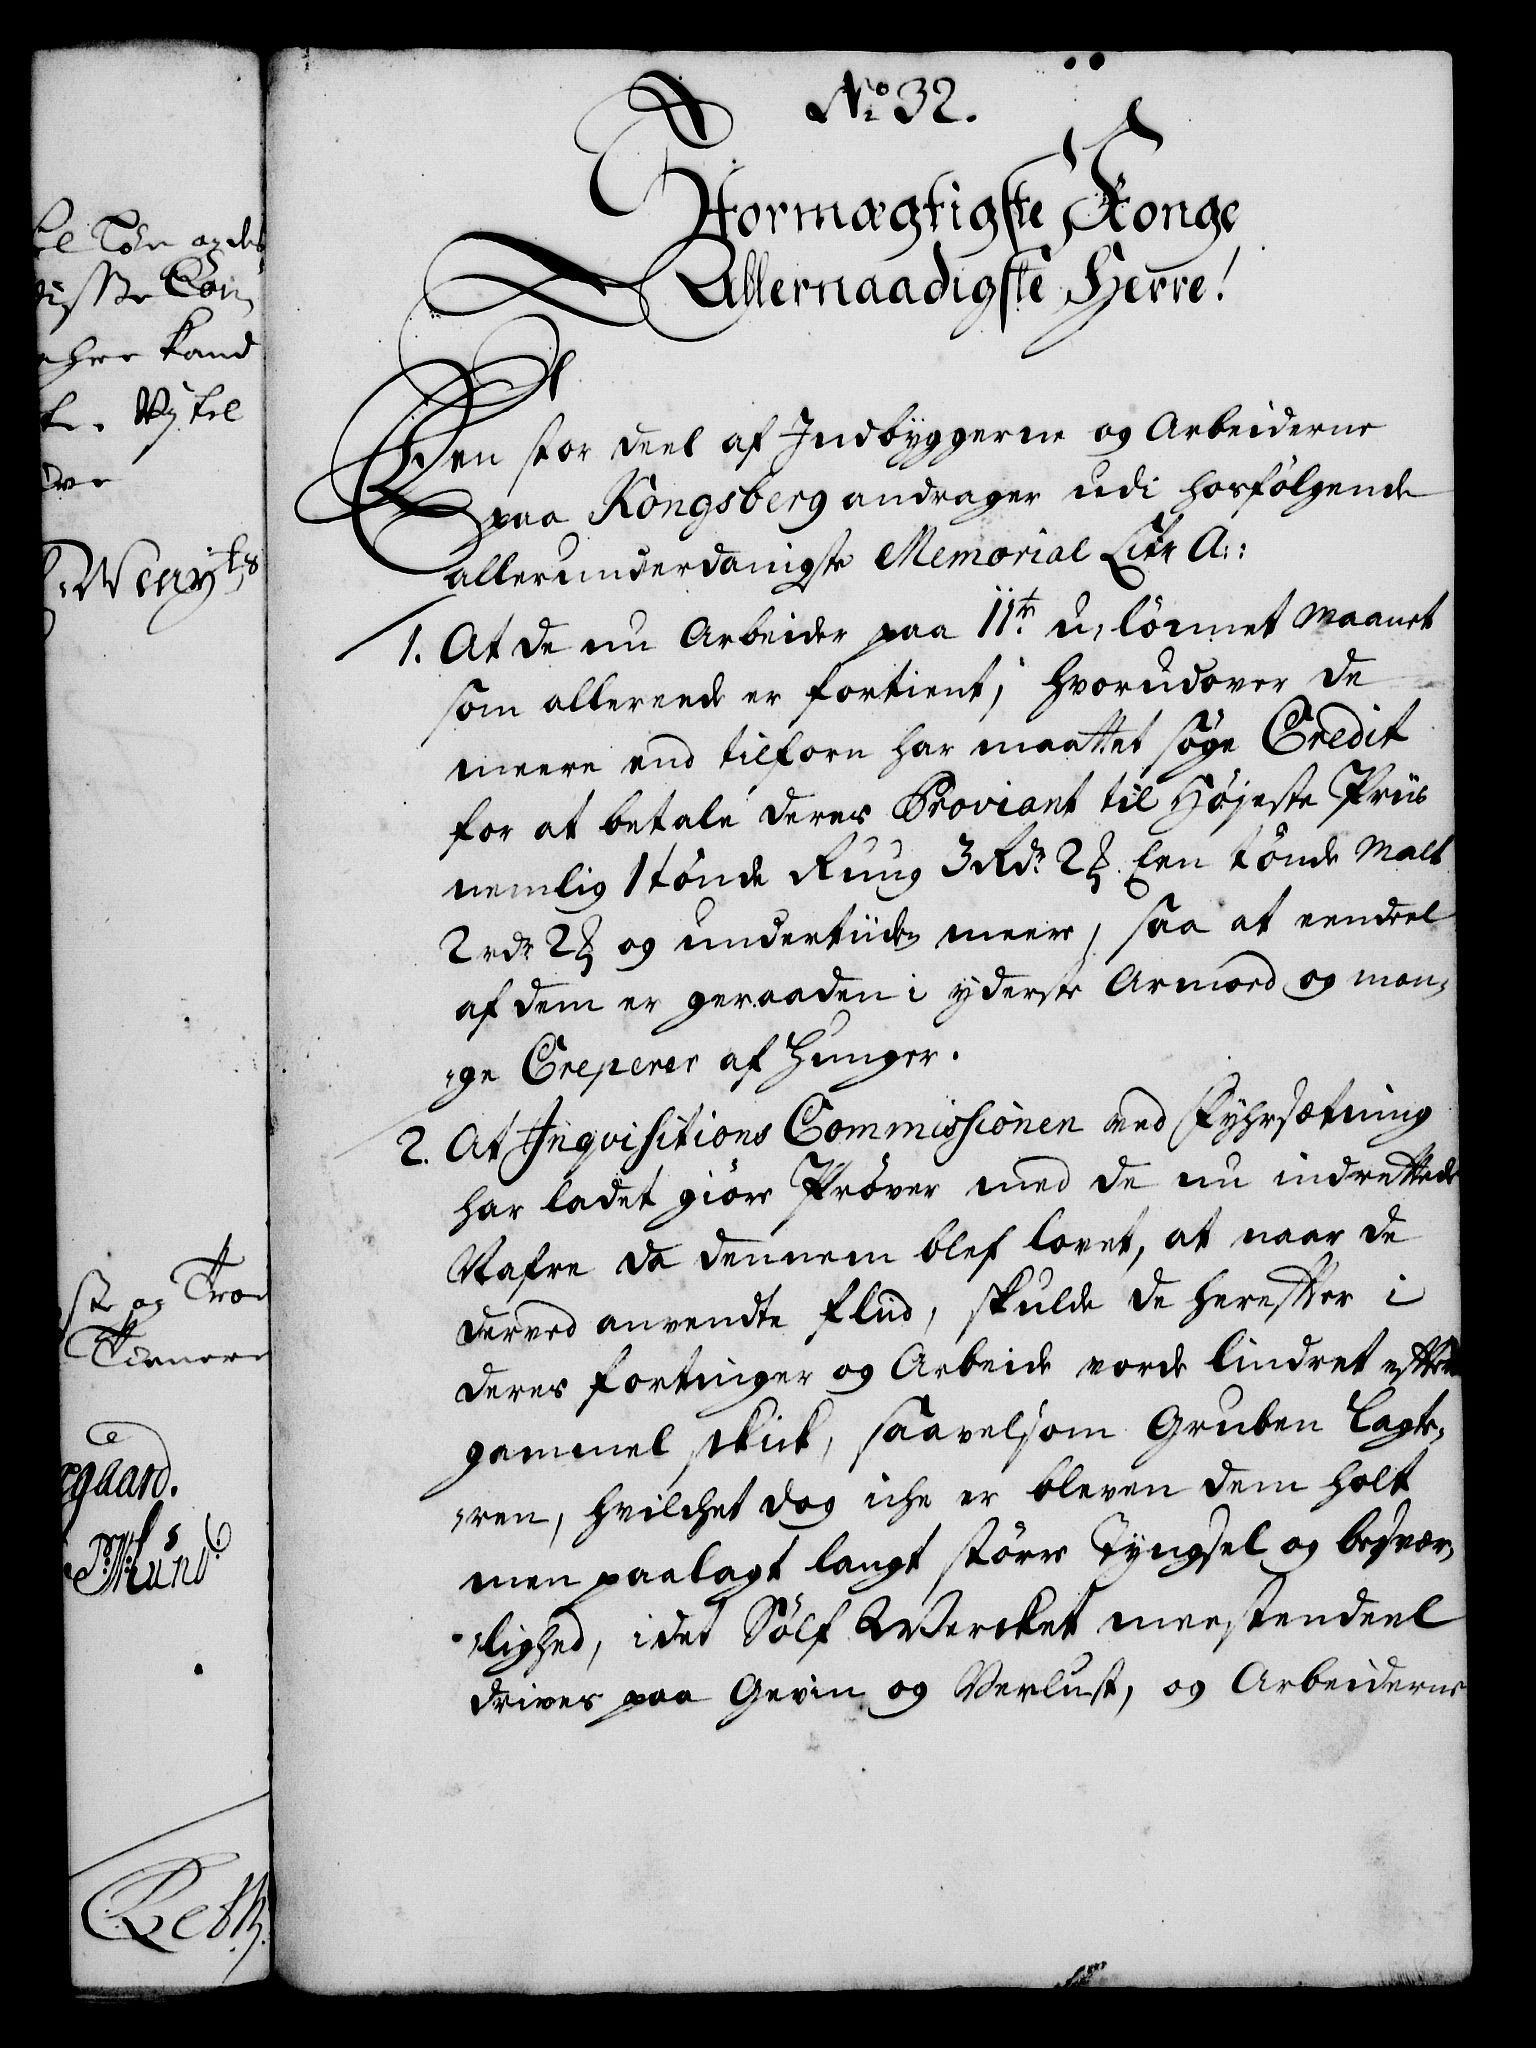 No 32.
Stormægtigste Konge
Allernaadigste Herre!
Een stor deel af Indbyggerne og Arbeiderne
paa Kongsberg andrager udi hosfølgende
allerunderdanigste Memorial Litr A::
1. At de nu Arbeider paa 11te u-lönnet Maanet
som allereede er fortient, hvorudover de
meere end tilforn har maattet söge Credit
for at betale deres Proviant til Höjeste Priis
nemlig 1 tönde Ruug 3 Rdr 2 ß Een tönde Malt
2 rdr 2 ß og undertiiden meere, saa at eendeel
af dem er geraaden i yderste Armoed og man-
-ge Creperer af Hunger.
2. At Inqvisitions Commissionen ved Fyhrsætning
har ladet giöre Pröver med de nu indrettede
Stafre da dennem blef lovet, at naar de
derved anvendte fliid, skulde de herefter i
deres fortinger og Arbeide vorde lindret efter
gammel skick, saavelsom Gruben Lagte-
-ren, hvilchet dog iche er bleven dem holt
men paalagt langt större Tyngsel og besvær-
-lighed, idet Sölf Wercket meestendeel
drives paa Gevin og Verlust, og Arbeiderne